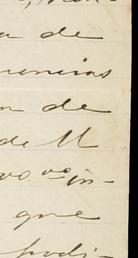 a de
uencias
n de
de M
vo vo in-
que
podi-